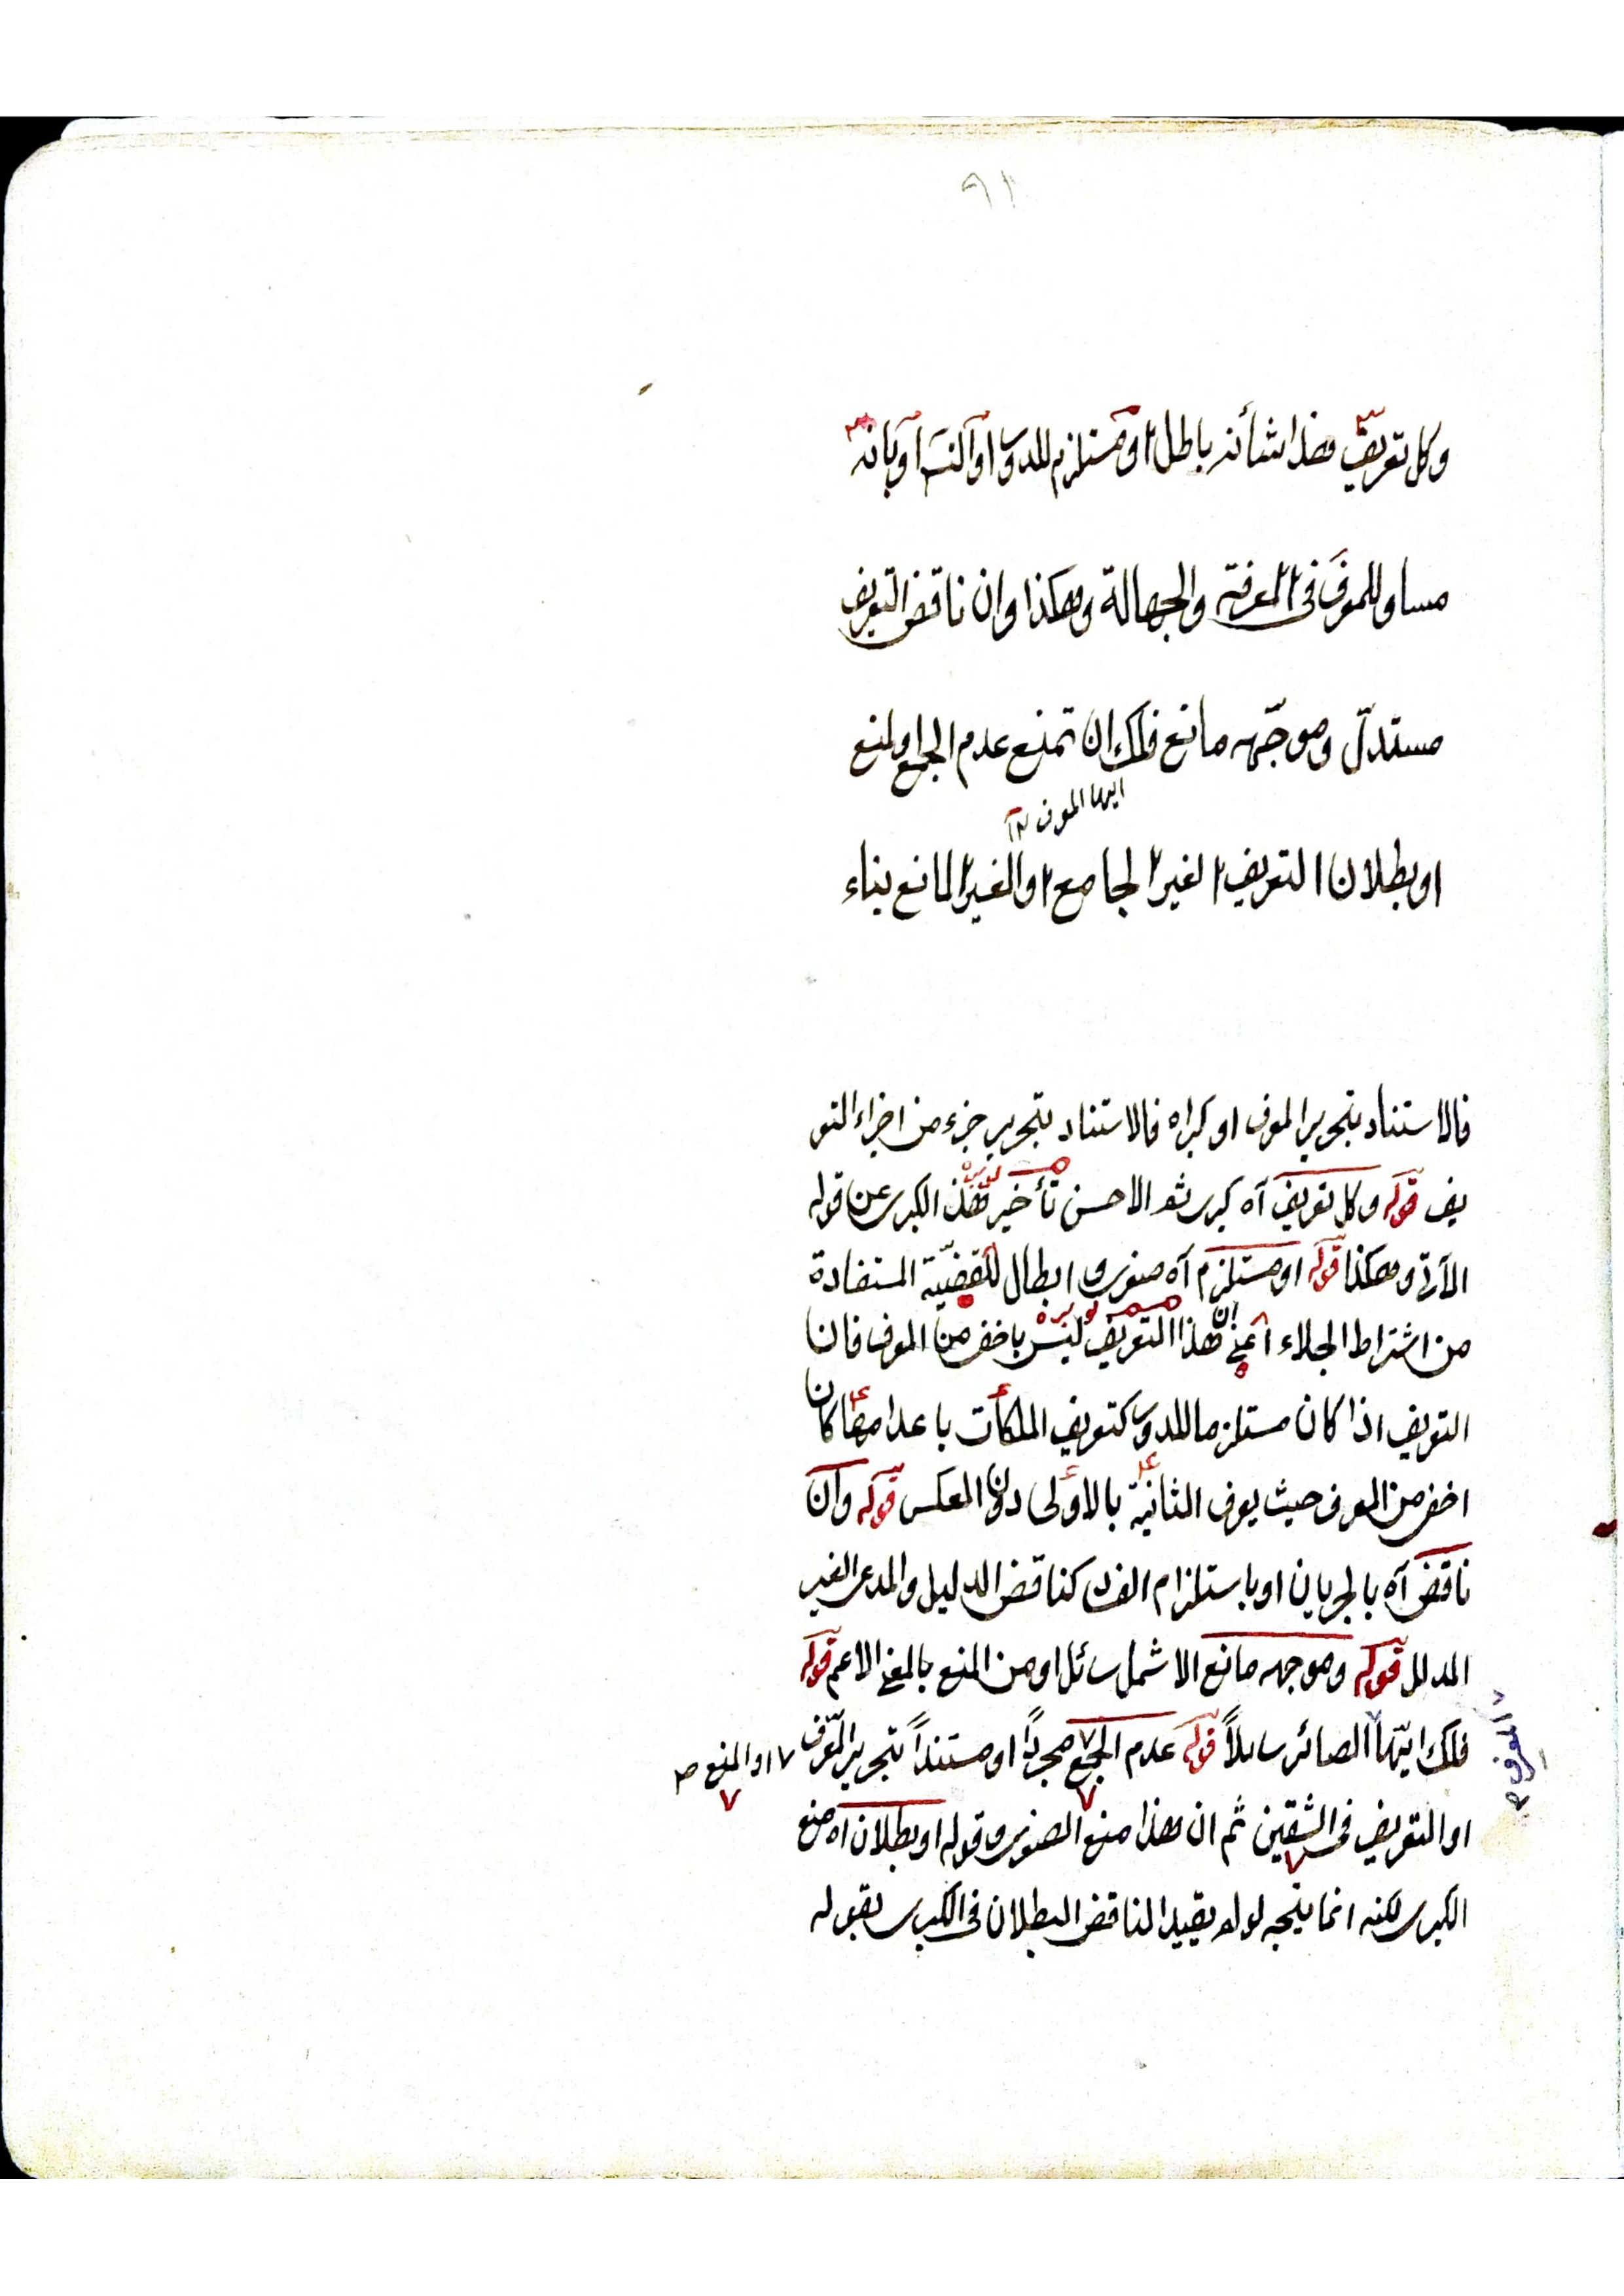 ٩١
وكل تعريف هذا شأنه باطل او مستلزم للدور او التس او بانه
مساو للمعرف فى المعرفة والجهالة وهكذا وان ناقض التعريف
مستدل وموجهه مانع فلك ان تمنع عدم الجمع او المنع
ايها المعرف ١٢
او بطلان التعريف الغير الجامع او الغير المانع بناء
فالاستناد بتحرير المعرف او كبراه فالاستناد بتحرير جزء من اجزاء التعر
يف قوله وكل تعريف آه كبرى ثم الاحسن تأخير هذه الكبرى عن قوله
الآتى وهكذا قوله او مستلزم آه صغرى وابطال للقضية المستفادة
من اشتراط الجلاء اعنى ان هذا التعريف ليس باخفى من المعرف فان
التعريف اذا كان مستلزما للدور كتعريف الملكات باعدامها كان
اخفى من المعرف حيث يعرف الثانية بالاولى دون العكس قوله وان
ناقض آه بالجريان او باستلزام الفساد كناقض الدليل والمدعى الغير
المدلل قوله وموجهه مانع الاشمل سائل او من المنع بالمعنى الاعم قوله
فلك ايها الصائر سائلاً قوله عدم الجمع مجرداً او مستنداً بتحرير المعرف ٧ او المنع ص
المعرف م
او التعريف فى الشقين ثم ان هذا منع الصغرى وقوله او بطلان آه منع
الكبرى لكنه انما يتجه لو لم يقيد الناقض البطلان فى الكبرى بقوله